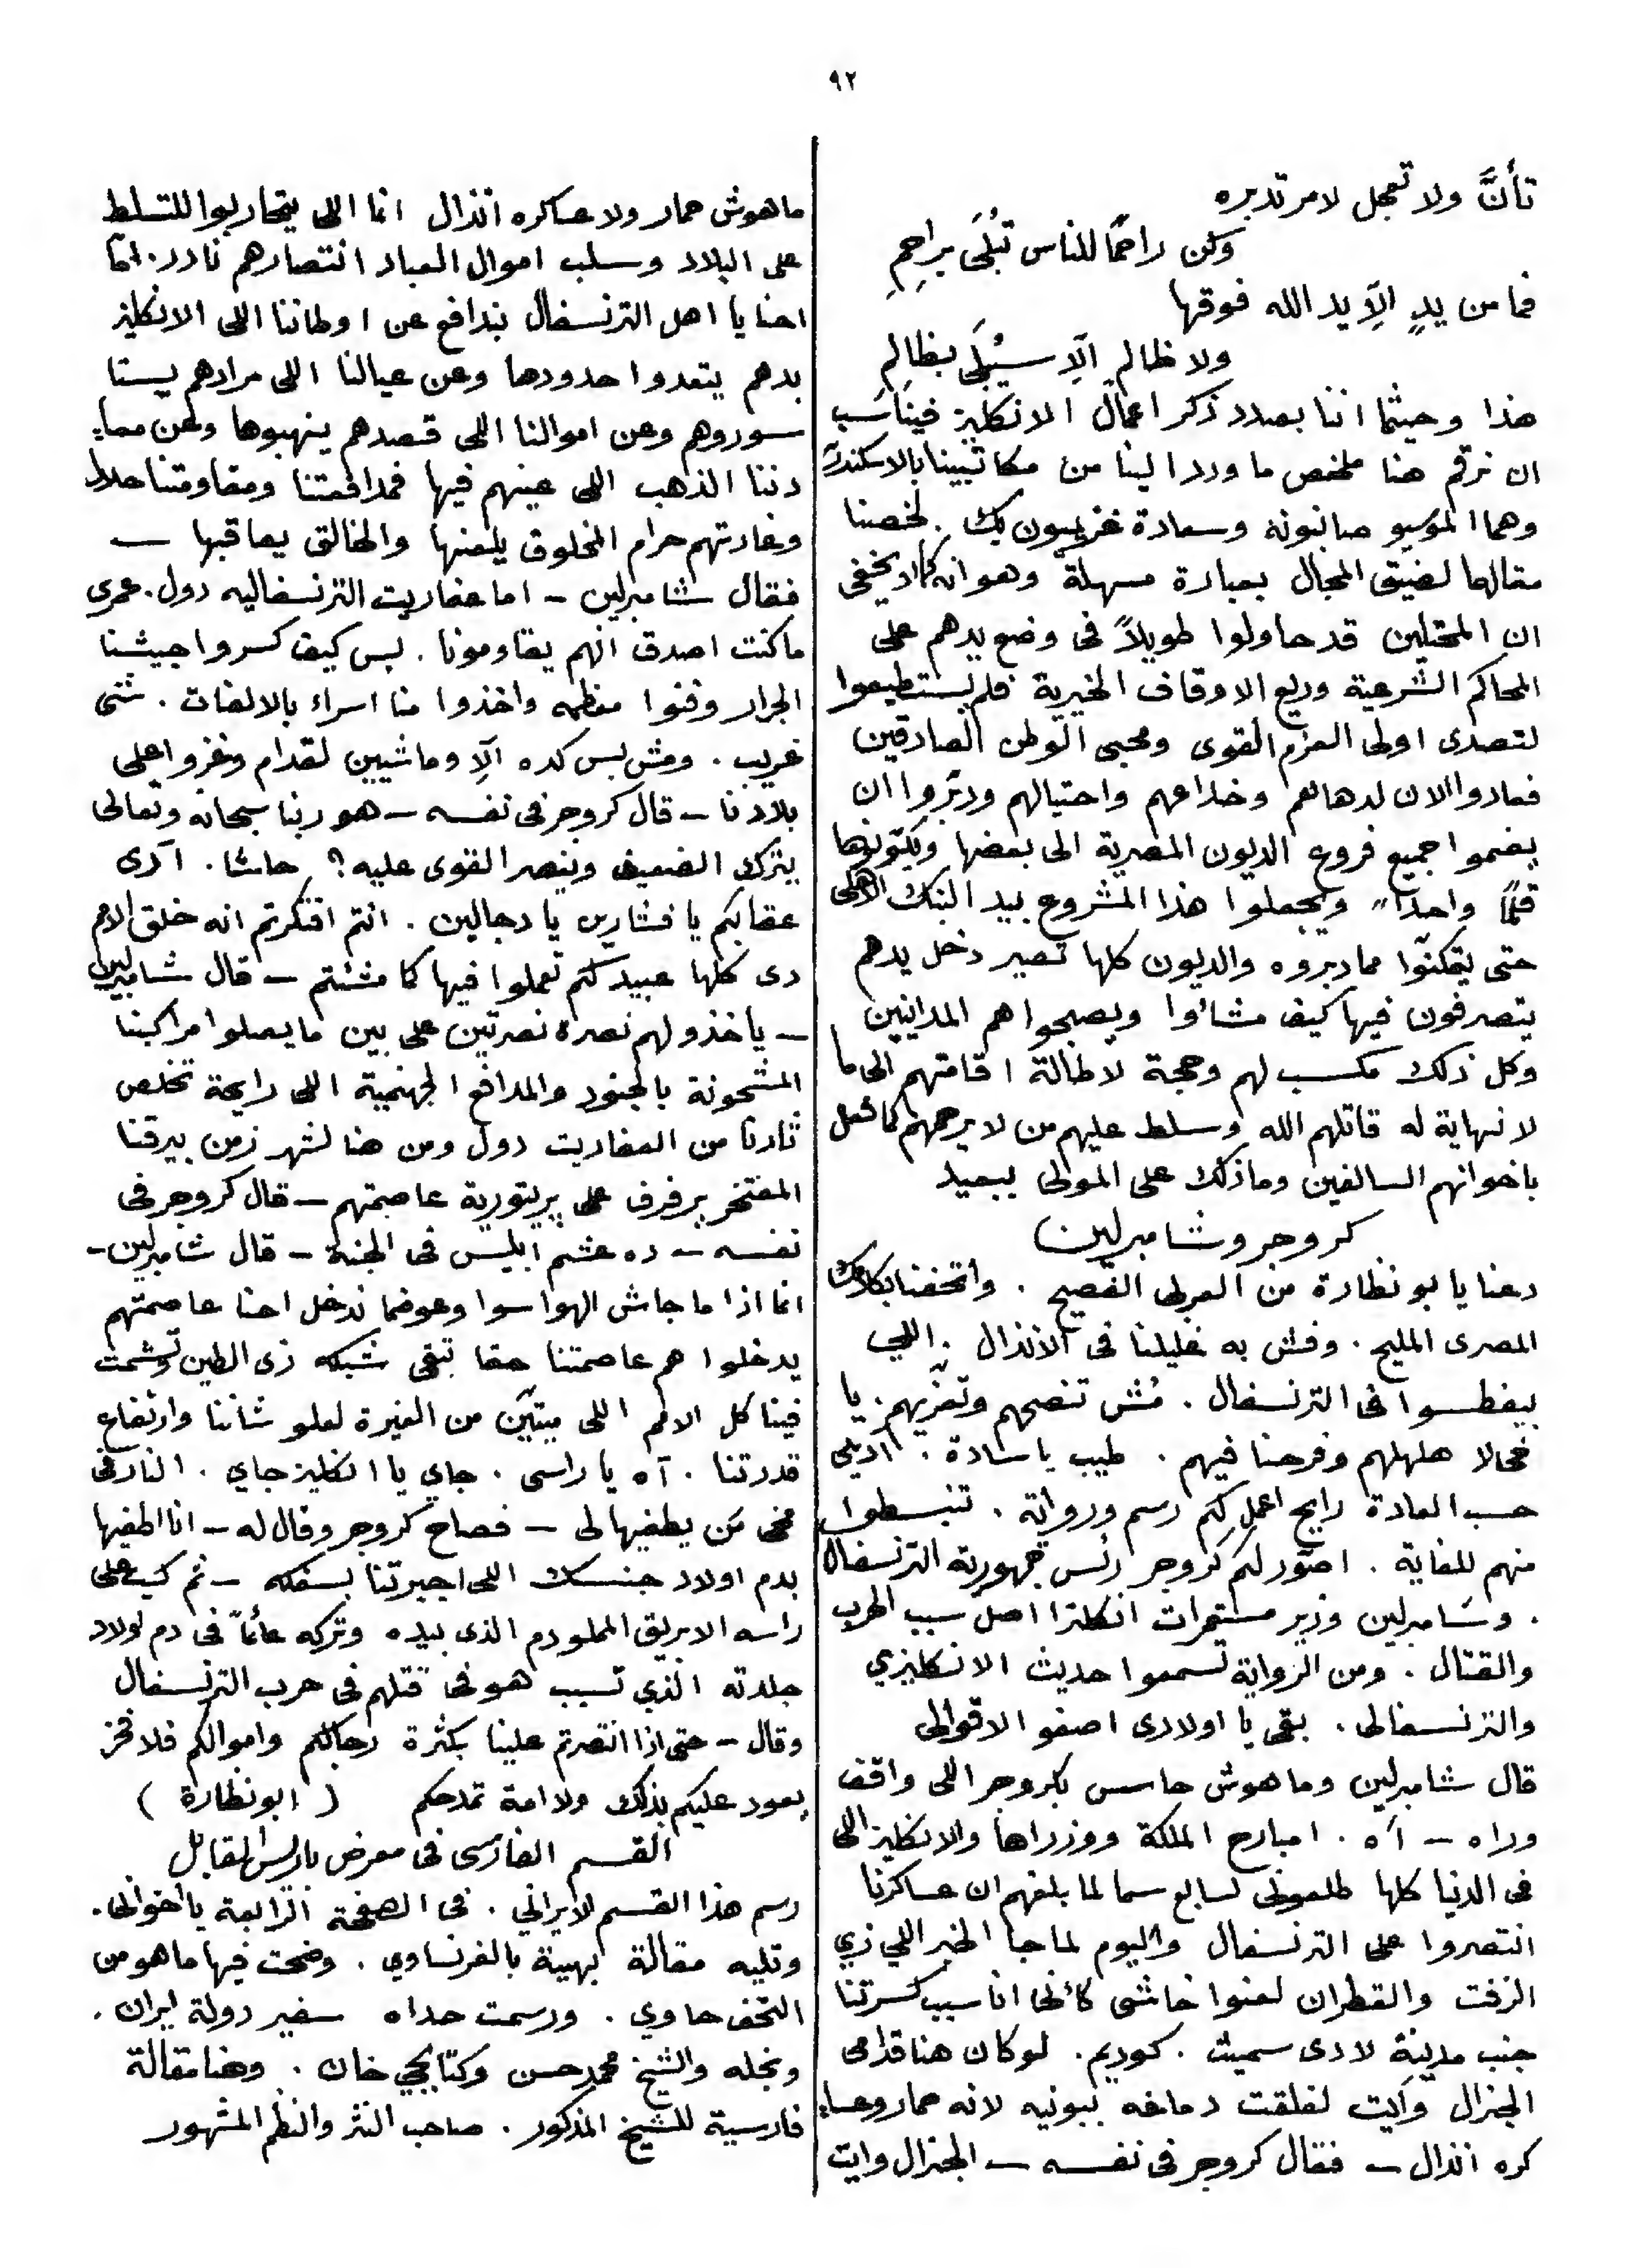 ٩٢
تأنَّ ولا تعجل لامر تدبره
وكن راحمًا للناس تُبلَى براحِمِ
فما من يدٍ إلاَّ يد الله فوقها
ولا ظالم الاَّ سيُبلَى بظالم
هذا وحيثما اننا بصدد ذكر اعمال الانكليز فيناسب
ان نرقم هنا ملخص ما ورد الينا من مكاتبينا بالاسكندرية
وهما الموسيو صانونه وسعادة بك . لخصنا
مقالهما لضيق المجال بعبارة سهلة وهو انه كما لا يخفى
ان المحتلين قد حاولوا طويلاً فى وضع يدهم على
المحاكم الشرعية وريع الاوقاف الخيرية فلم يستطيعوا
لتصدى اولى العزم القوى ومحبى الوطن الصادقين
فعادوا الان لدهائهم وخداعهم واحتيالهم ودبّروا ان
يضموا جميع فروع الديون المصرية الى بعضها ويكوّنوها
قلمًا واحدًا ويجعلوا هذا المشروع بيد البنك الاهلى
حتى يتمكنّوا مما دبروه والديون كلها تصير دخل يدهم
يتصرفون فيها كيف مشائوا ويصبحوا هم المداينين
وكل ذلك مكسب لهم وحجة لاطالة اقامتهم الى ما
لا نهاية له قاتلهم الله وسلط عليهم من لا يرحمهم كما فعل
باخوانهم السالفين وما ذلك على المولى ببعيد
كروجر وشامبرلين
دعنا يا بو نظارة من العربى الفصيح . واتحفنا بكلامك
المصرى المليح . وفش به غليلنا فى الانذال . اللي
بيغطسوا فى الترنسفال . مُش تنصحهم وتعزّيهم . يا
فحالا هلهلهم وفرحنا فيهم . طيب يا سادة . اديلى
حسب العادة رايح اعمل لكم رسم ورواية . تنبسطوا
منهم للغاية . اصوّر لكم كروجر رئس جمهورية الترنسفال
. وشامبرلين وزير مستعمرات انكلترا اصل سبب الحرب
والقتال . ومن الرواية تسمعوا حديث الانكليزي
والترنسفالى . بقى يا اولادى اصغو الاقوالى
قال شامبرلين وما هوش حاسس بكروجر اللى واقف
وراه — آه . امبارح الملكة ووزراها والانكليز اللى
فى الدنيا كلها طلعونى لسابع سما لما بلغهم ان عساكرنا
انتصروا على الترنسفال واليوم لما جا الخبر اللي زي
الزفت والقطران لعنوا خاشى كأنى انا سبب كسرتنا
جنب مدينة لادى سميث . كوديم . لو كان هنا قدامى
الجنرال وايت لفلقت دماغه ببونيه لانه حمار وعسا
كره انذال — فقال كروجر فى نفسه — الجنرال وايت
ماهوش حمار ولا عساكره انذال انما اللى يتحاربوا للتسلط
على البلاد وسلب اموال العباد انتصارهم نادر . امّا
احنا يا اهل الترنسفال ندافع عن اوطاننا اللى الانكليز
بدهم يتعدوا حدودها وعن عيالنا اللى مرادهم يستا
سوروهم وعن اموالنا اللى قصدهم ينهبوها وعن معا
دننا الذهب اللى عينهم فيها فمدافعتنا ومقاومتنا حلال
وغارتهم حرام المخلوق يلعنها والخالق يعاقبها —
فقال شامبرلين — اما عفاريت الترنسفاليه دول . عمرى
ما كنت اصدق انهم يقاومونا . بس كيف كسروا جيشنا
الجرار وفنوا معظمه واخذوا منا اسراء بالالفات . شئى
غريب . ومش بس كده الاّ وماشيين لقدام وغزوا على
بلادنا — قال كروجر فى نفسه — هو ربنا سبحانه وتعالى
يترك الضعيف وينصر القوى عليه ؟ حاشا . آدى
عقابكم يا فشارين يا دجالين . انتم افتكرتم انه خلق الامم
دى كلها عبيد لكم تعملوا فيها كما مشئتم — قال شامبرلين
— ياخذو لهم نصره نصرتين على بين ما يصلوا مراكبنا
المشحونة بالجنود والمدافع الجهنمية اللى رايحة تخلص
ثارنا من العفاريت دول ومن هنا لشهر زمن بيرقنا
المفتخر يرفرف على پريتورية عاصمتهم — قال كروجر فى
نفسه — ده عشم ابليس فى الجنة — قال شامبرلين —
انما اذا ما جاش الهوا سوا وعوضما ندخل احنا عاصمتهم
يدخلوا هم عاصمتنا حقا تبقى شبكه زى الطين وتشمت
فينا كل الامم اللى ميتيّن من الغيرة لعلو شاننا وارتفاع
قدرتنا . آه يا راسى . جاي يا انكليز جاي . النار فى
مخى مَن يطفيها لى — فصاح كروجر وقال له — انا اطفيها
بدم اولاد جنسك اللى اجبرتنا بسفكه — ثم كب على
راسه الابريق المملو دم الذى بيده وتركه عائمًا فى دم اولاد
جلدته الذي تسبب هو فى قتلهم فى حرب الترنسفال
وقال — حتى اذا انتصرتم علينا بكثرة رجالكم واموالكم فلا فخر
يعود عليكم بذلك ولا امة تمدحكم ( ابو نظارة )
القسم الفارسى فى معرض باريس المقابل
رسم هذا القسم الايراني . فى الصفحة الرابعة يا اخوانى .
وتليه مقالة بهية بالفرنساوي . وضحت فيها ما هو من
التحف حاوي . ورسمت حداه سفير دولة ايران .
ونجله والشيخ محمد حسن وكتابجي خان . وهنا مقالة
فارسية للشيخ المذكور . صاحب النثر والنظم المشهور